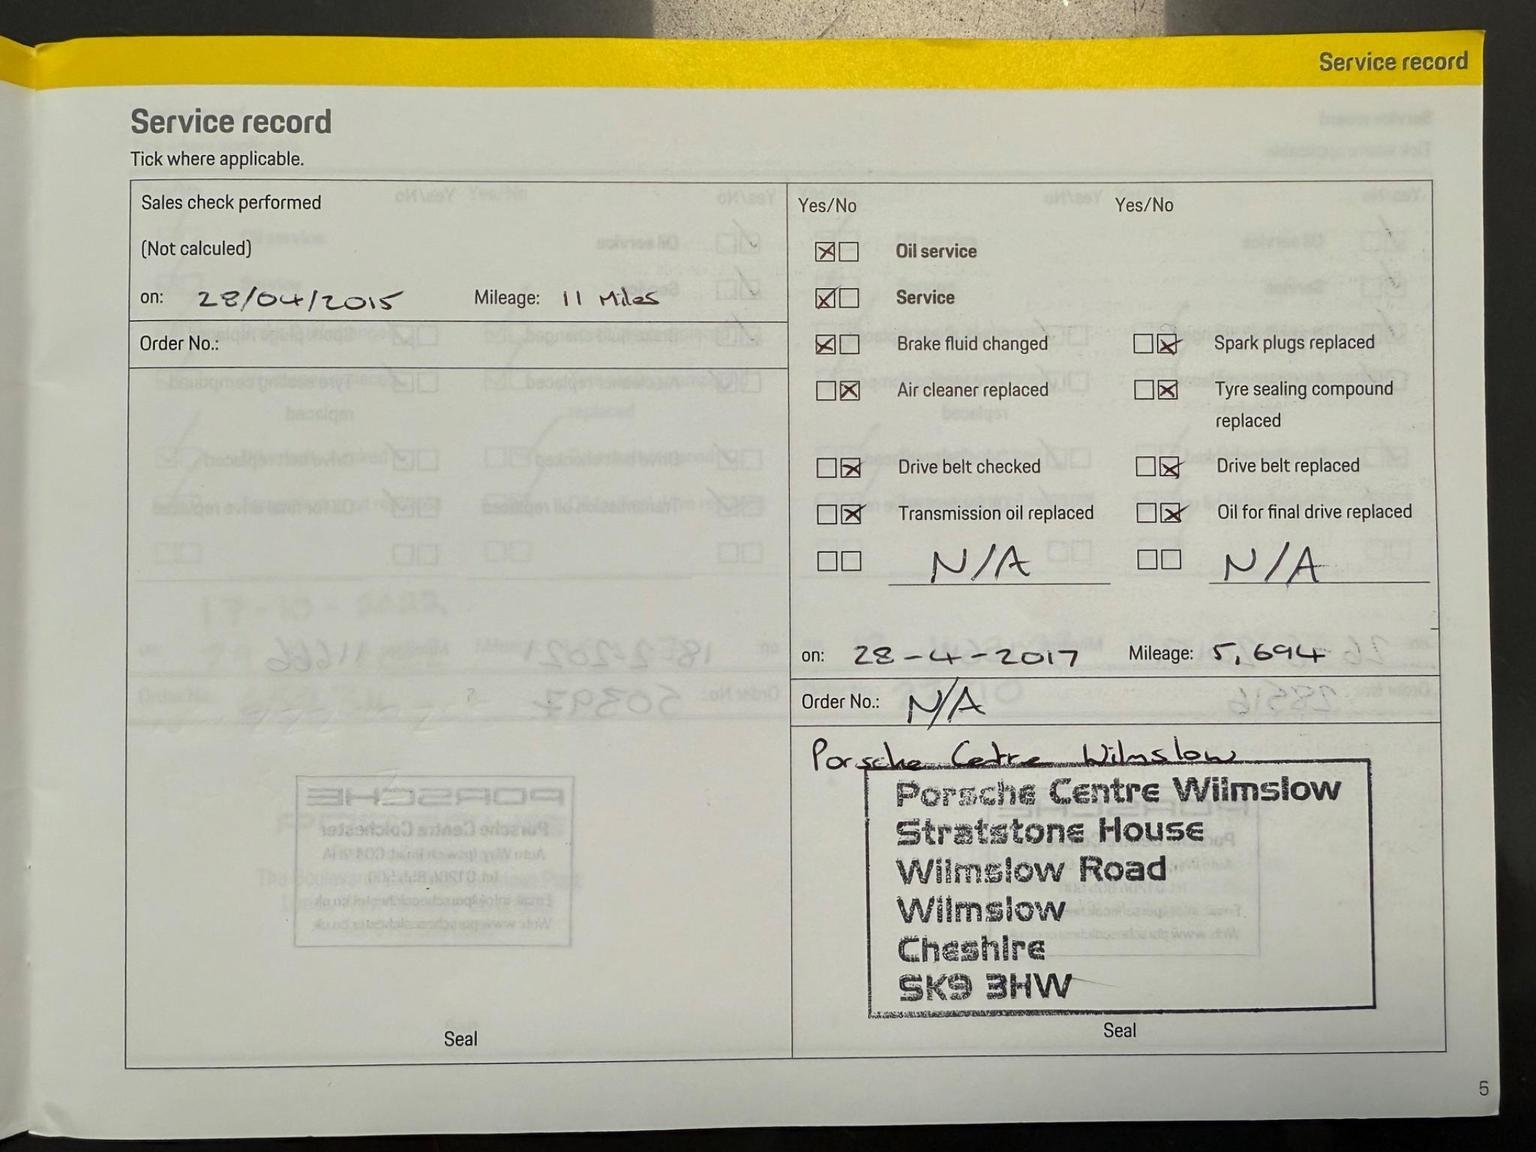 Service record
Service record
Tick where applicable.
Sales check performed
(Not calculed)
on: 28/04/2015 Mileage: 11 Miles
Order No.:
Seal
Yes/No Yes/No
Oil service
Service
Brake fluid changed Spark plugs replaced
Air cleaner replaced Tyre sealing compound
replaced
Drive belt checked Drive belt replaced
Transmission oil replaced Oil for final drive replaced
N/A N/A
on: 28-4-2017 Mileage: 5,694
Order No.: N/A
Porsche Centre Wilmslow
Porsche Centre Wilmslow
Stratstone House
Wilmslow Road
Wilmslow
Cheshire
SK9 3HW
Seal
5